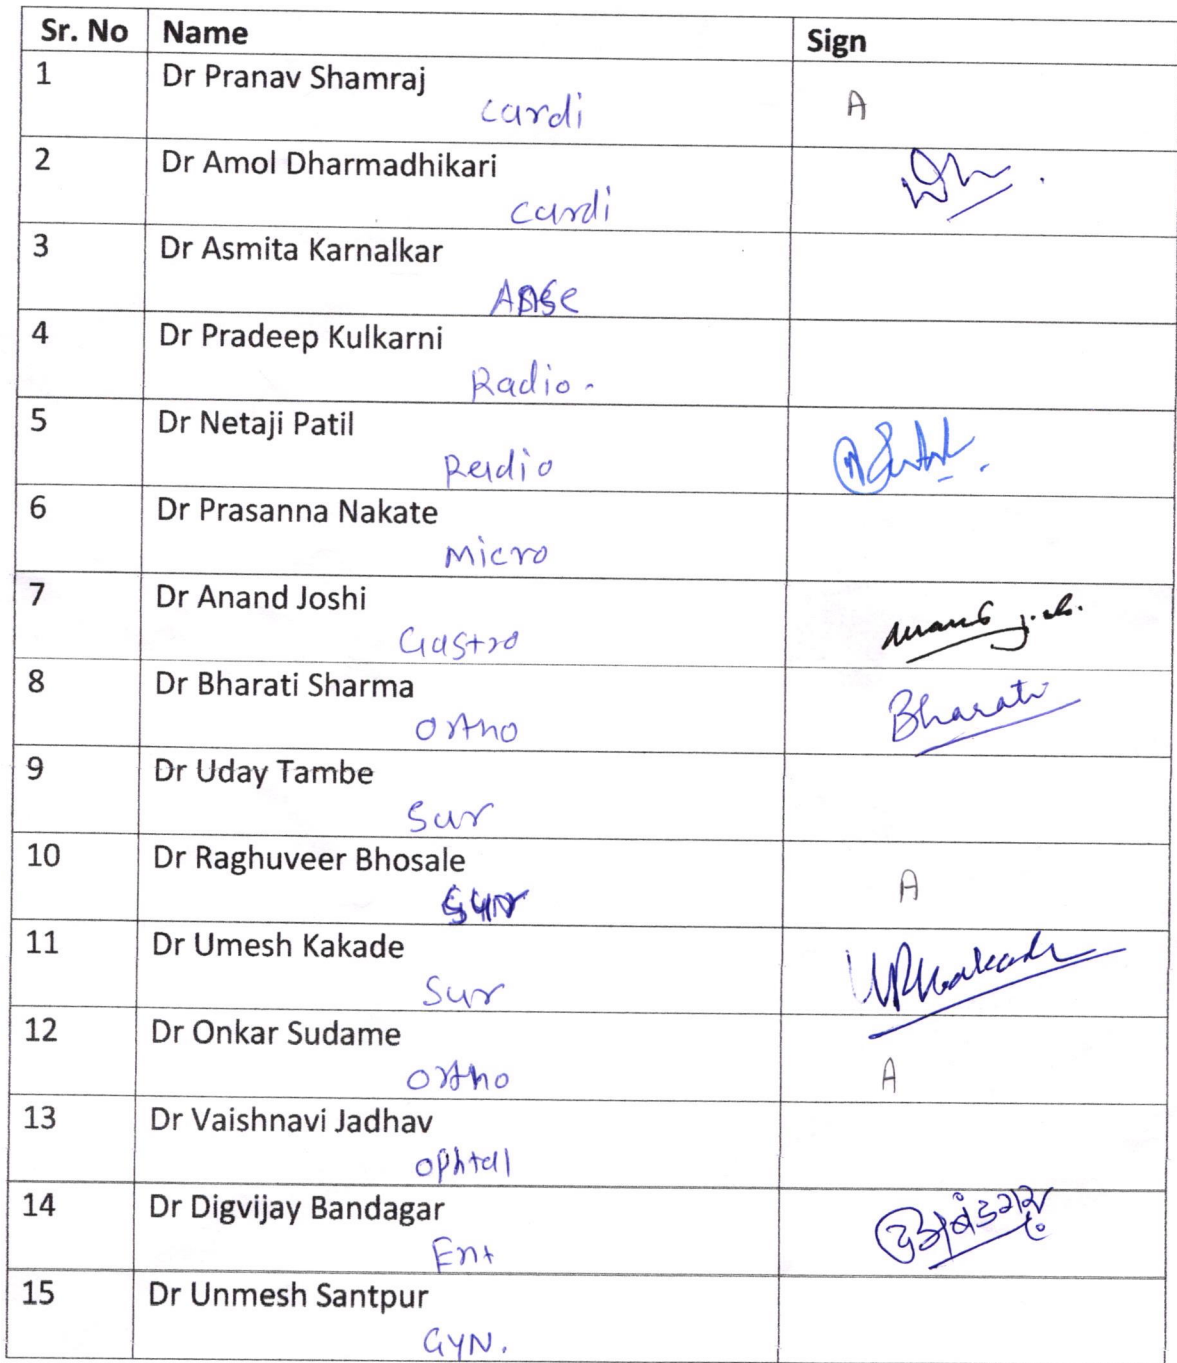 Sr. No Name Sign
1 Dr Pranav Shamraj
cardi A
2 Dr Amol Dharmadhikari
cardi
3 Dr Asmita Karnalkar
4 Dr Pradeep Kulkarni
Radio.
5 Dr Netaji Patil
Radio
6 Dr Prasanna Nakate
Micro
7 Dr Anand Joshi
Gastro
8 Dr Bharati Sharma Bharati
Ortho
9 Dr Uday Tambe
Sur
10 Dr Raghuveer Bhosale
Sur A
11 Dr Umesh Kakade
Sur
12 Dr Onkar Sudame
Ortho A
13 Dr Vaishnavi Jadhav
ophtal
14 Dr Digvijay Bandagar
Ent
15 Dr Unmesh Santpur
GYN.